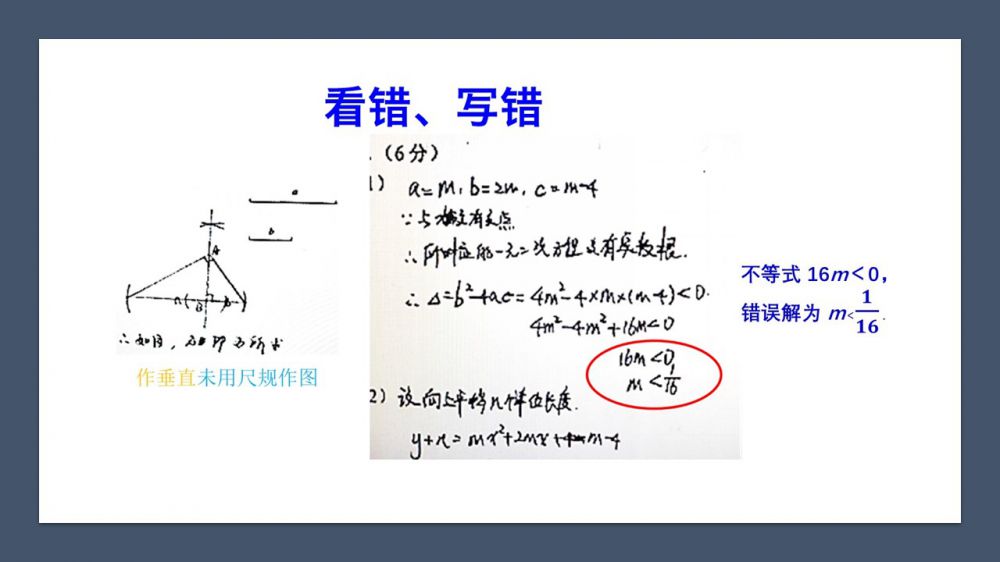 看错、写错
.（6分）
1) a=m, b=2m, c=m-4
∵与x轴没有交点
∴所对应的一元二次方程没有实数根.
∴Δ=b²-4ac=4m²-4×m×(m-4)<0.
4m²-4m²+16m<0
16m<0,
m<1/16
2) 设向上平移n个单位长度.
y+n=mx²+2mx+m-4
a
b
A
∴如图, 即为所求
作垂直未用尺规作图
不等式 16m＜0，
错误解为 m<1/16.